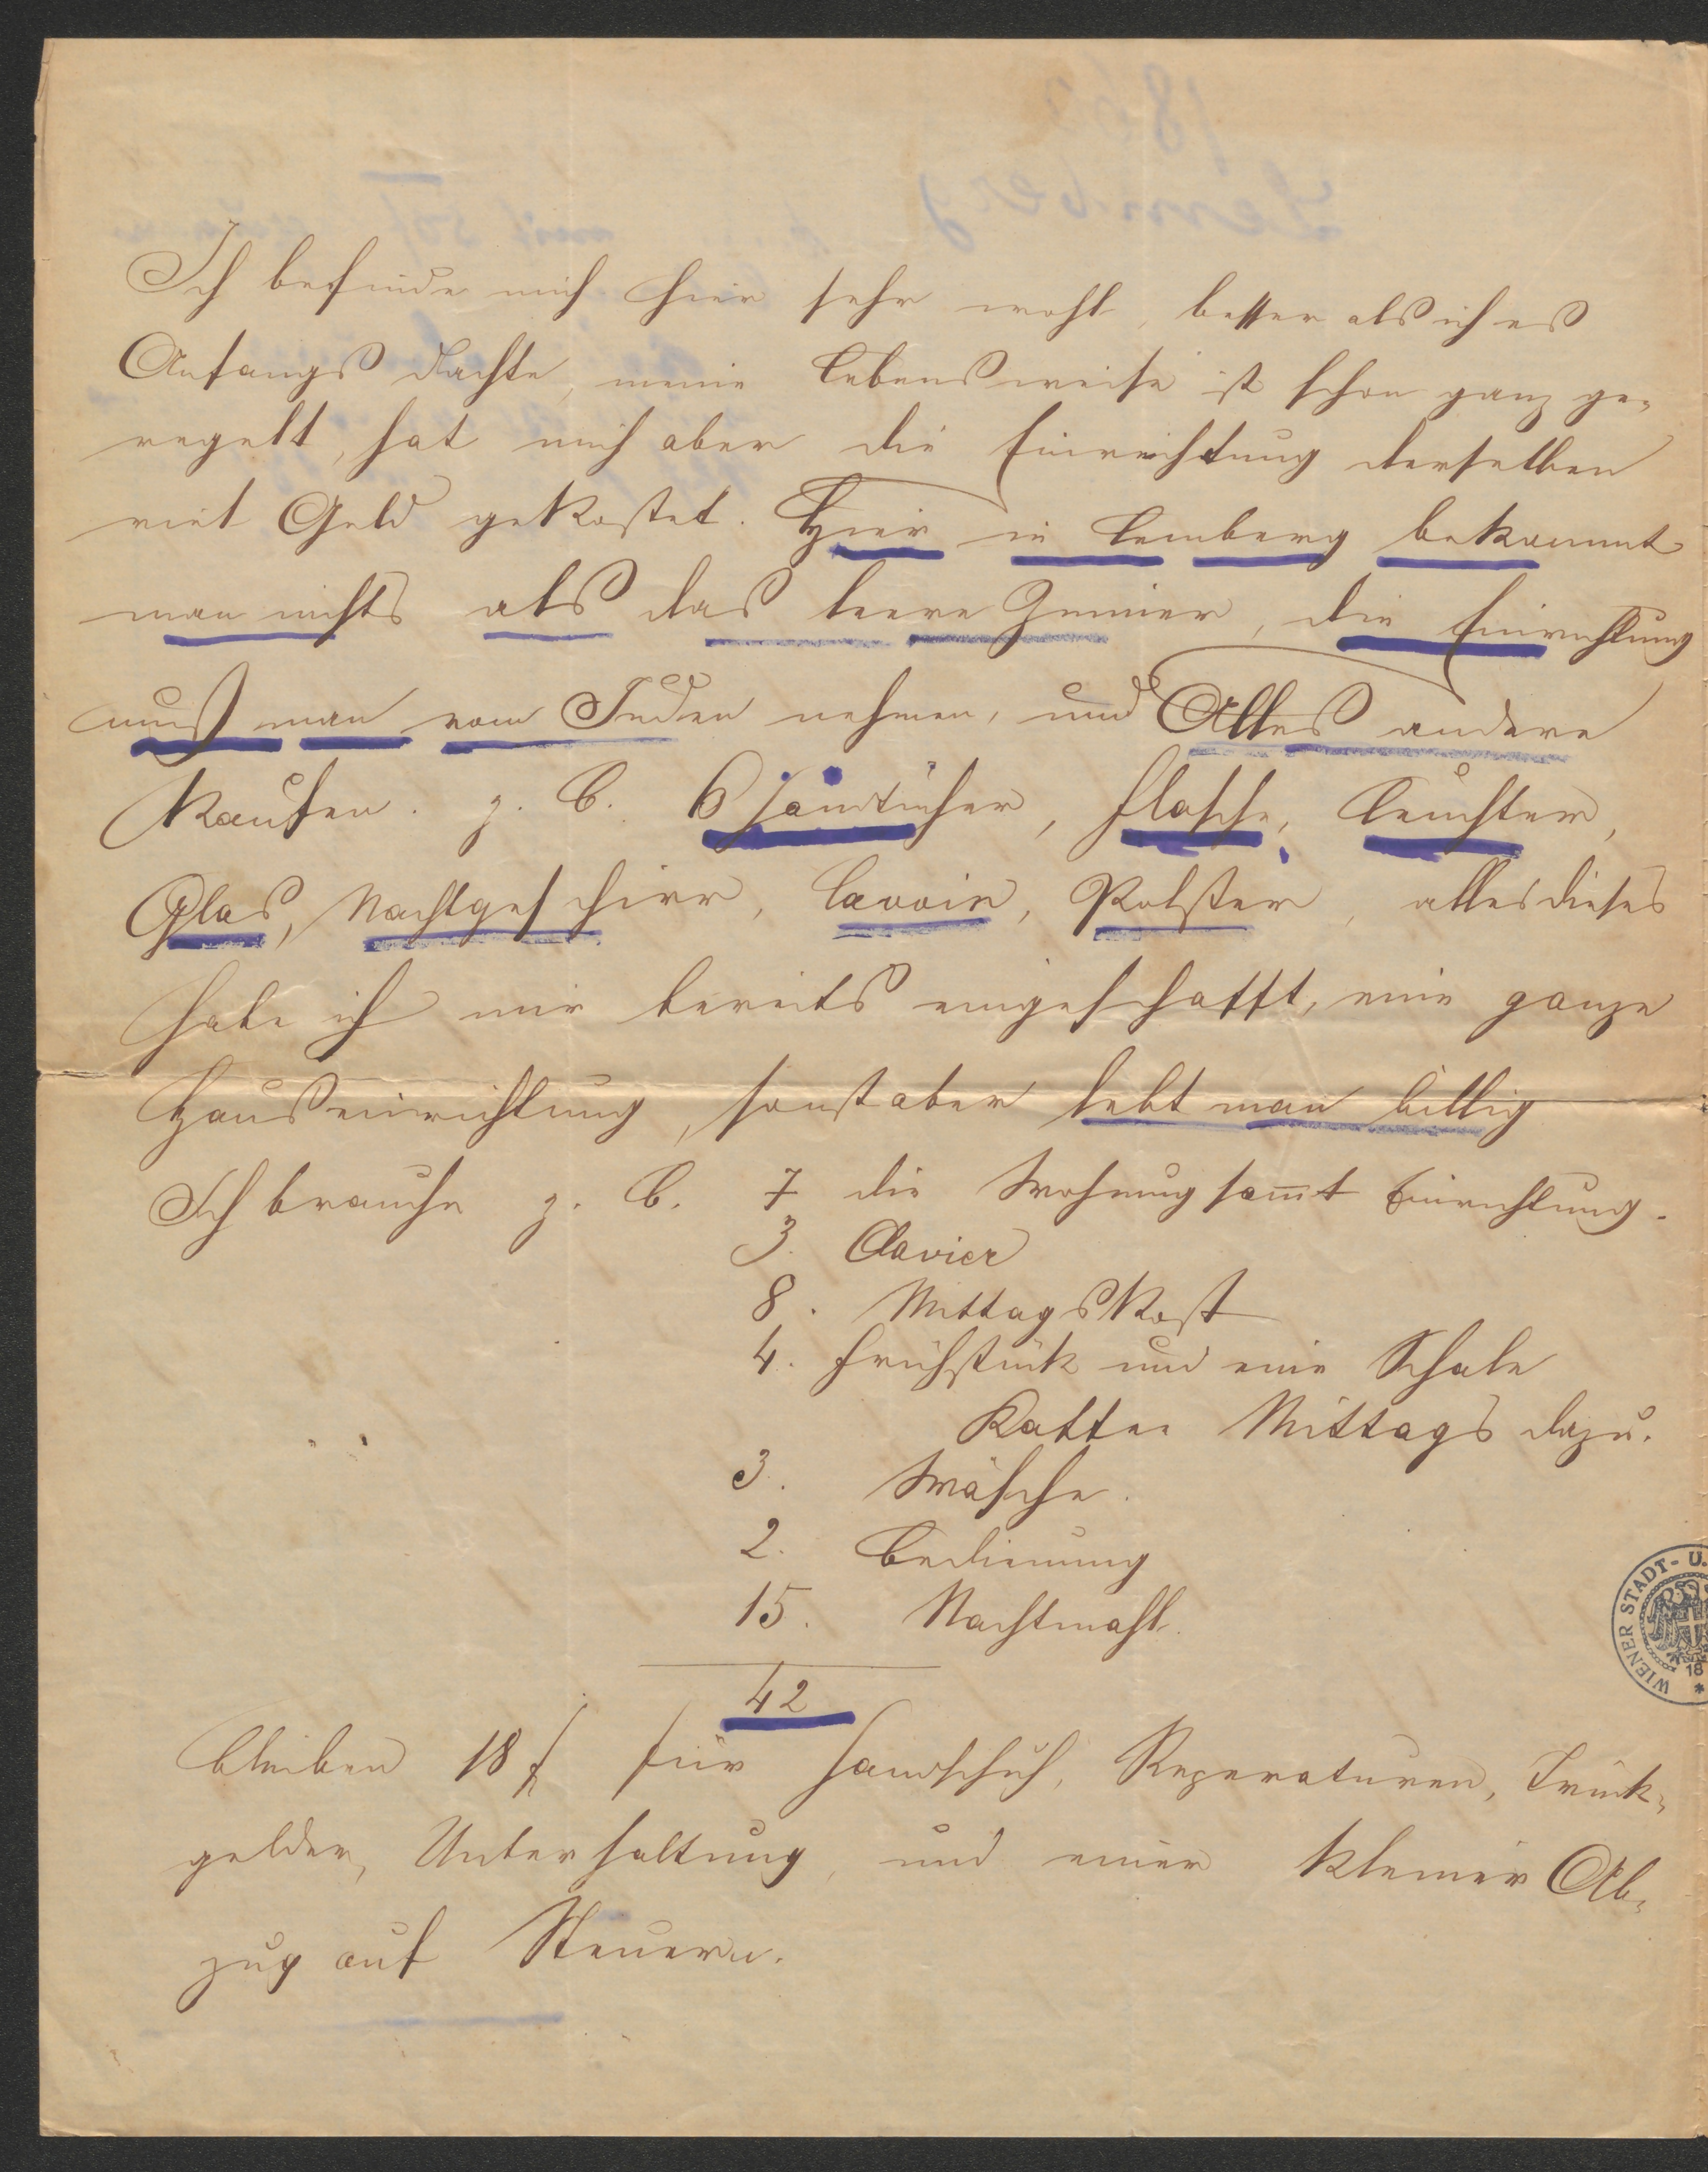 Ich befinde mich hier sehr wohl, besser als ich es
Anfangs dachte, meine Lebensweise ist schon ganz ge-
regelt, hat mich aber die Einrichtung derselben
viel Geld gekostet. Hier in Lemberg bekommt
man nichts als das leere Zimmer, die Einrichtung
muß man vom Juden nehmen, und Alles andere
kaufen. z. B. 6 Handtücher, Flasche, Leuchter,
Glas, Nachtgeschirr, Lavoir, Polster, alles dieses
habe ich mir bereits eingeschafft, eine ganze
Hauseinrichtung, sonst aber lebt man billig
Ich brauche z. B. 7 die Wohnung sam̄t Einrichtung.
3. Clavier
8. Mittagskost
4. Frühstück und eine Schale
Kaffee Mittags dazu.
3. Wäsche.
2. Bedienung
15. Nachtmahl.
42
bleiben 18 f für Handschuh, Reperaturen, Trink-
gelder, Unterhaltung, und einer kleiner Ab-
zug auf Steuern.
WIENER STADT- U.
18